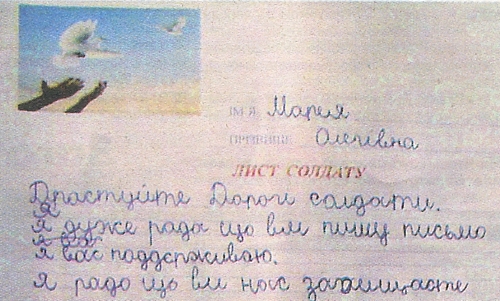 ІМ'Я Марія
ПРІЗВИЩЕ Олегівна
ЛИСТ СОЛДАТУ
Драстуйте Дороги солдати.
Я
Я дуже рада що вм пишу письмо
Я вас поддєрживаю.
Я радо що вм нас захищаєте